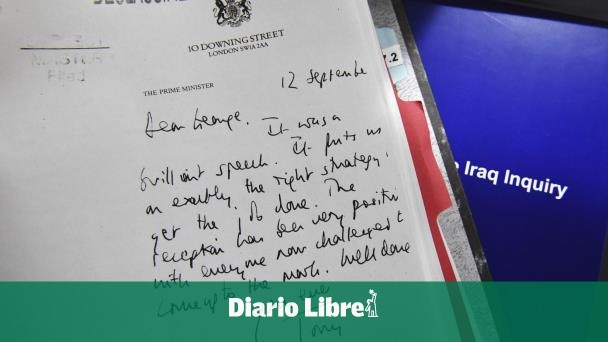 10 DOWNING STREET
LONDON SW1A 2AA
THE PRIME MINISTER
12 September
7.2
Iraq Inquiry
Dear George,
It was a
brilliant speech. It puts us
on exactly the right strategy
get the job done. The
reception has been very positive
with everyone now challenged to
come up to the mark. Well done
Diario Libre